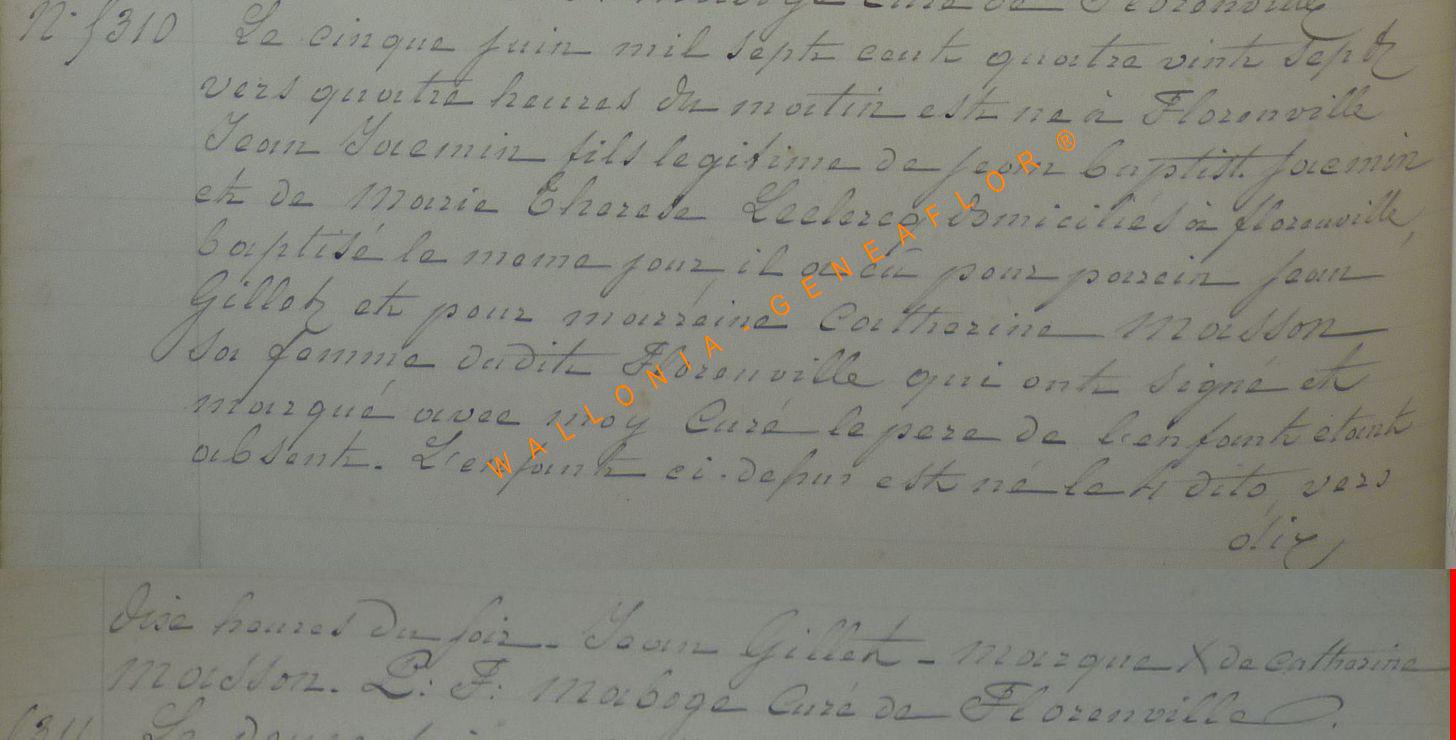 maboge curé de Florenville
N° 5310 Le cinque juin mil sept cent quatre vint sept
vers quatre heures du matin est ne à Florenville
Jean Jacmin fils legitime de jean baptist. jacmin
et de Marie Therese Leclercq domiciliés à florenville,
baptisé le meme jour, il a eu pour parein jean
Gillet et pour marreine Catherine Masson
sa femme dudit Florenville qui ont signé et
marqué avec moy Curé le pere de l'enfant etant
absent. L'enfant ci-dessus est né le 4 dito, vers
dix
dixe heures du soir. Jean Gillet - marque X de catherine
Masson. L: F: maboge Curé de Florenville.
WALLONIA-GENEAFLOR®